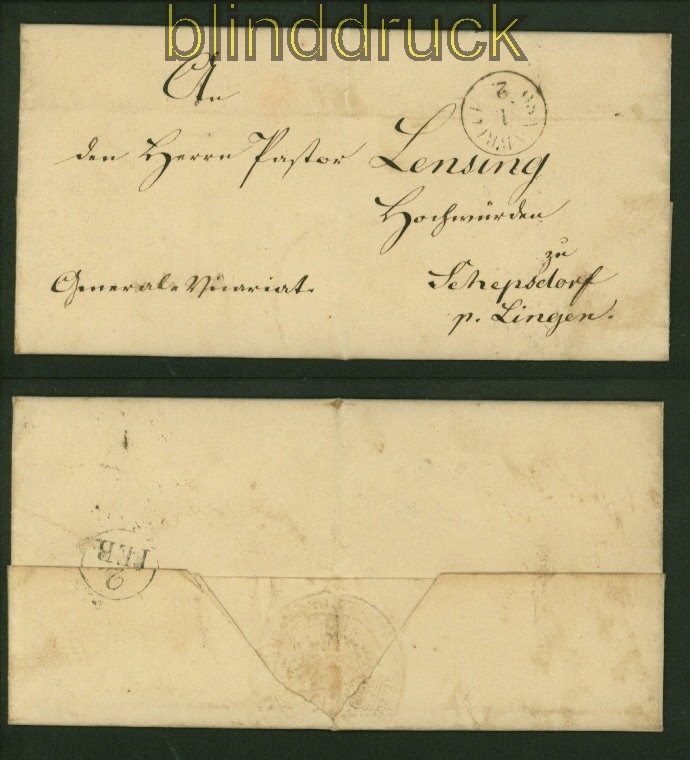 blinddruck
An
den Herrn Pastor Lensing
Hochwürden
zu
General-Vicariat.
Schepsdorf
p. Lingen.
OSNABRÜCK
1
2
2
FEB.